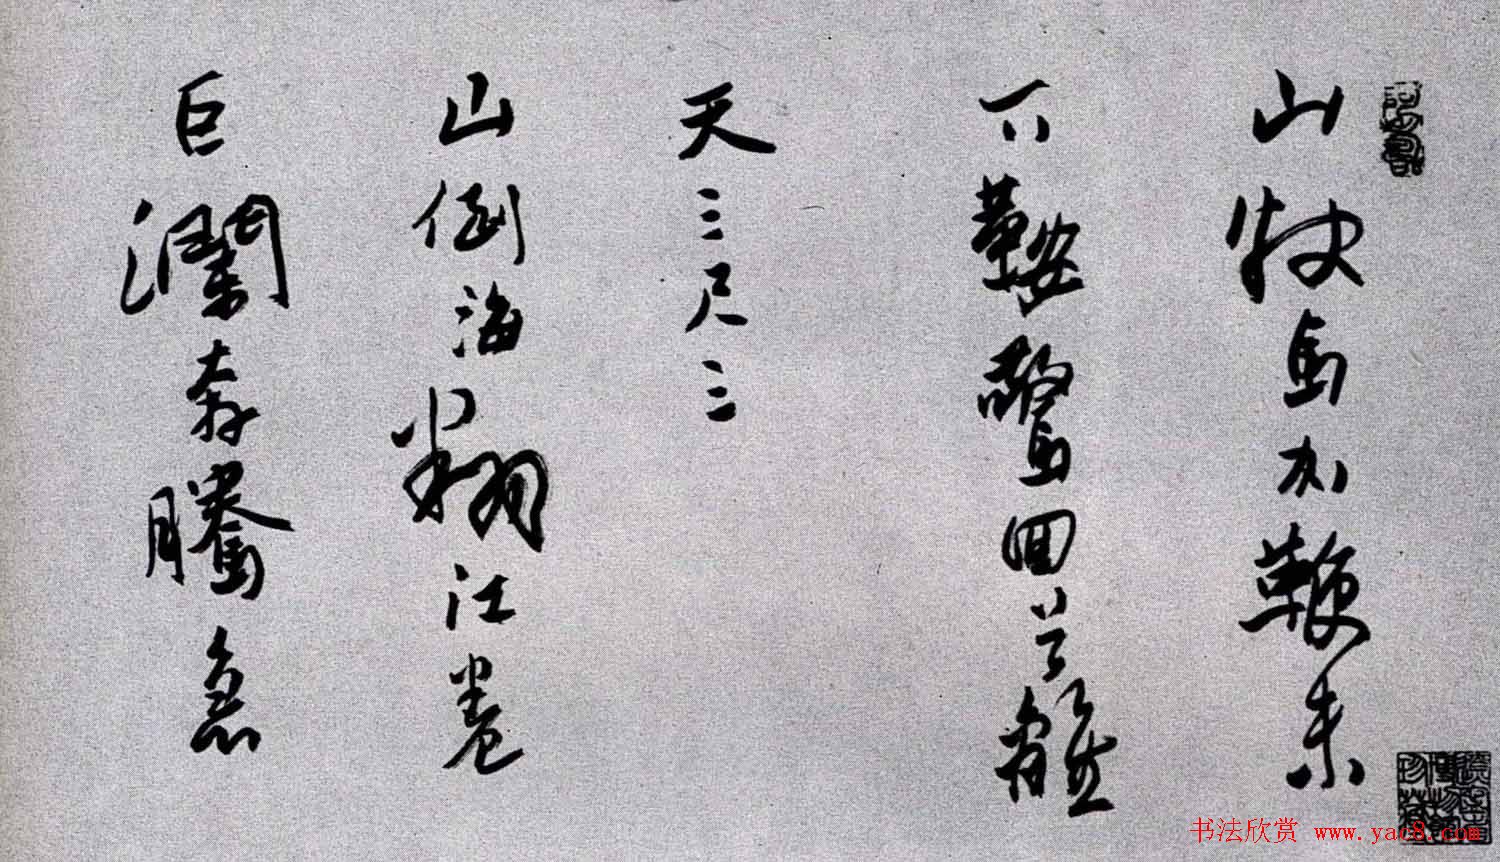 山快馬加鞭未
下鞍驚回首離
天三尺三
山倒海翻江卷
巨瀾奔騰急
书法欣赏 www.yac8.com